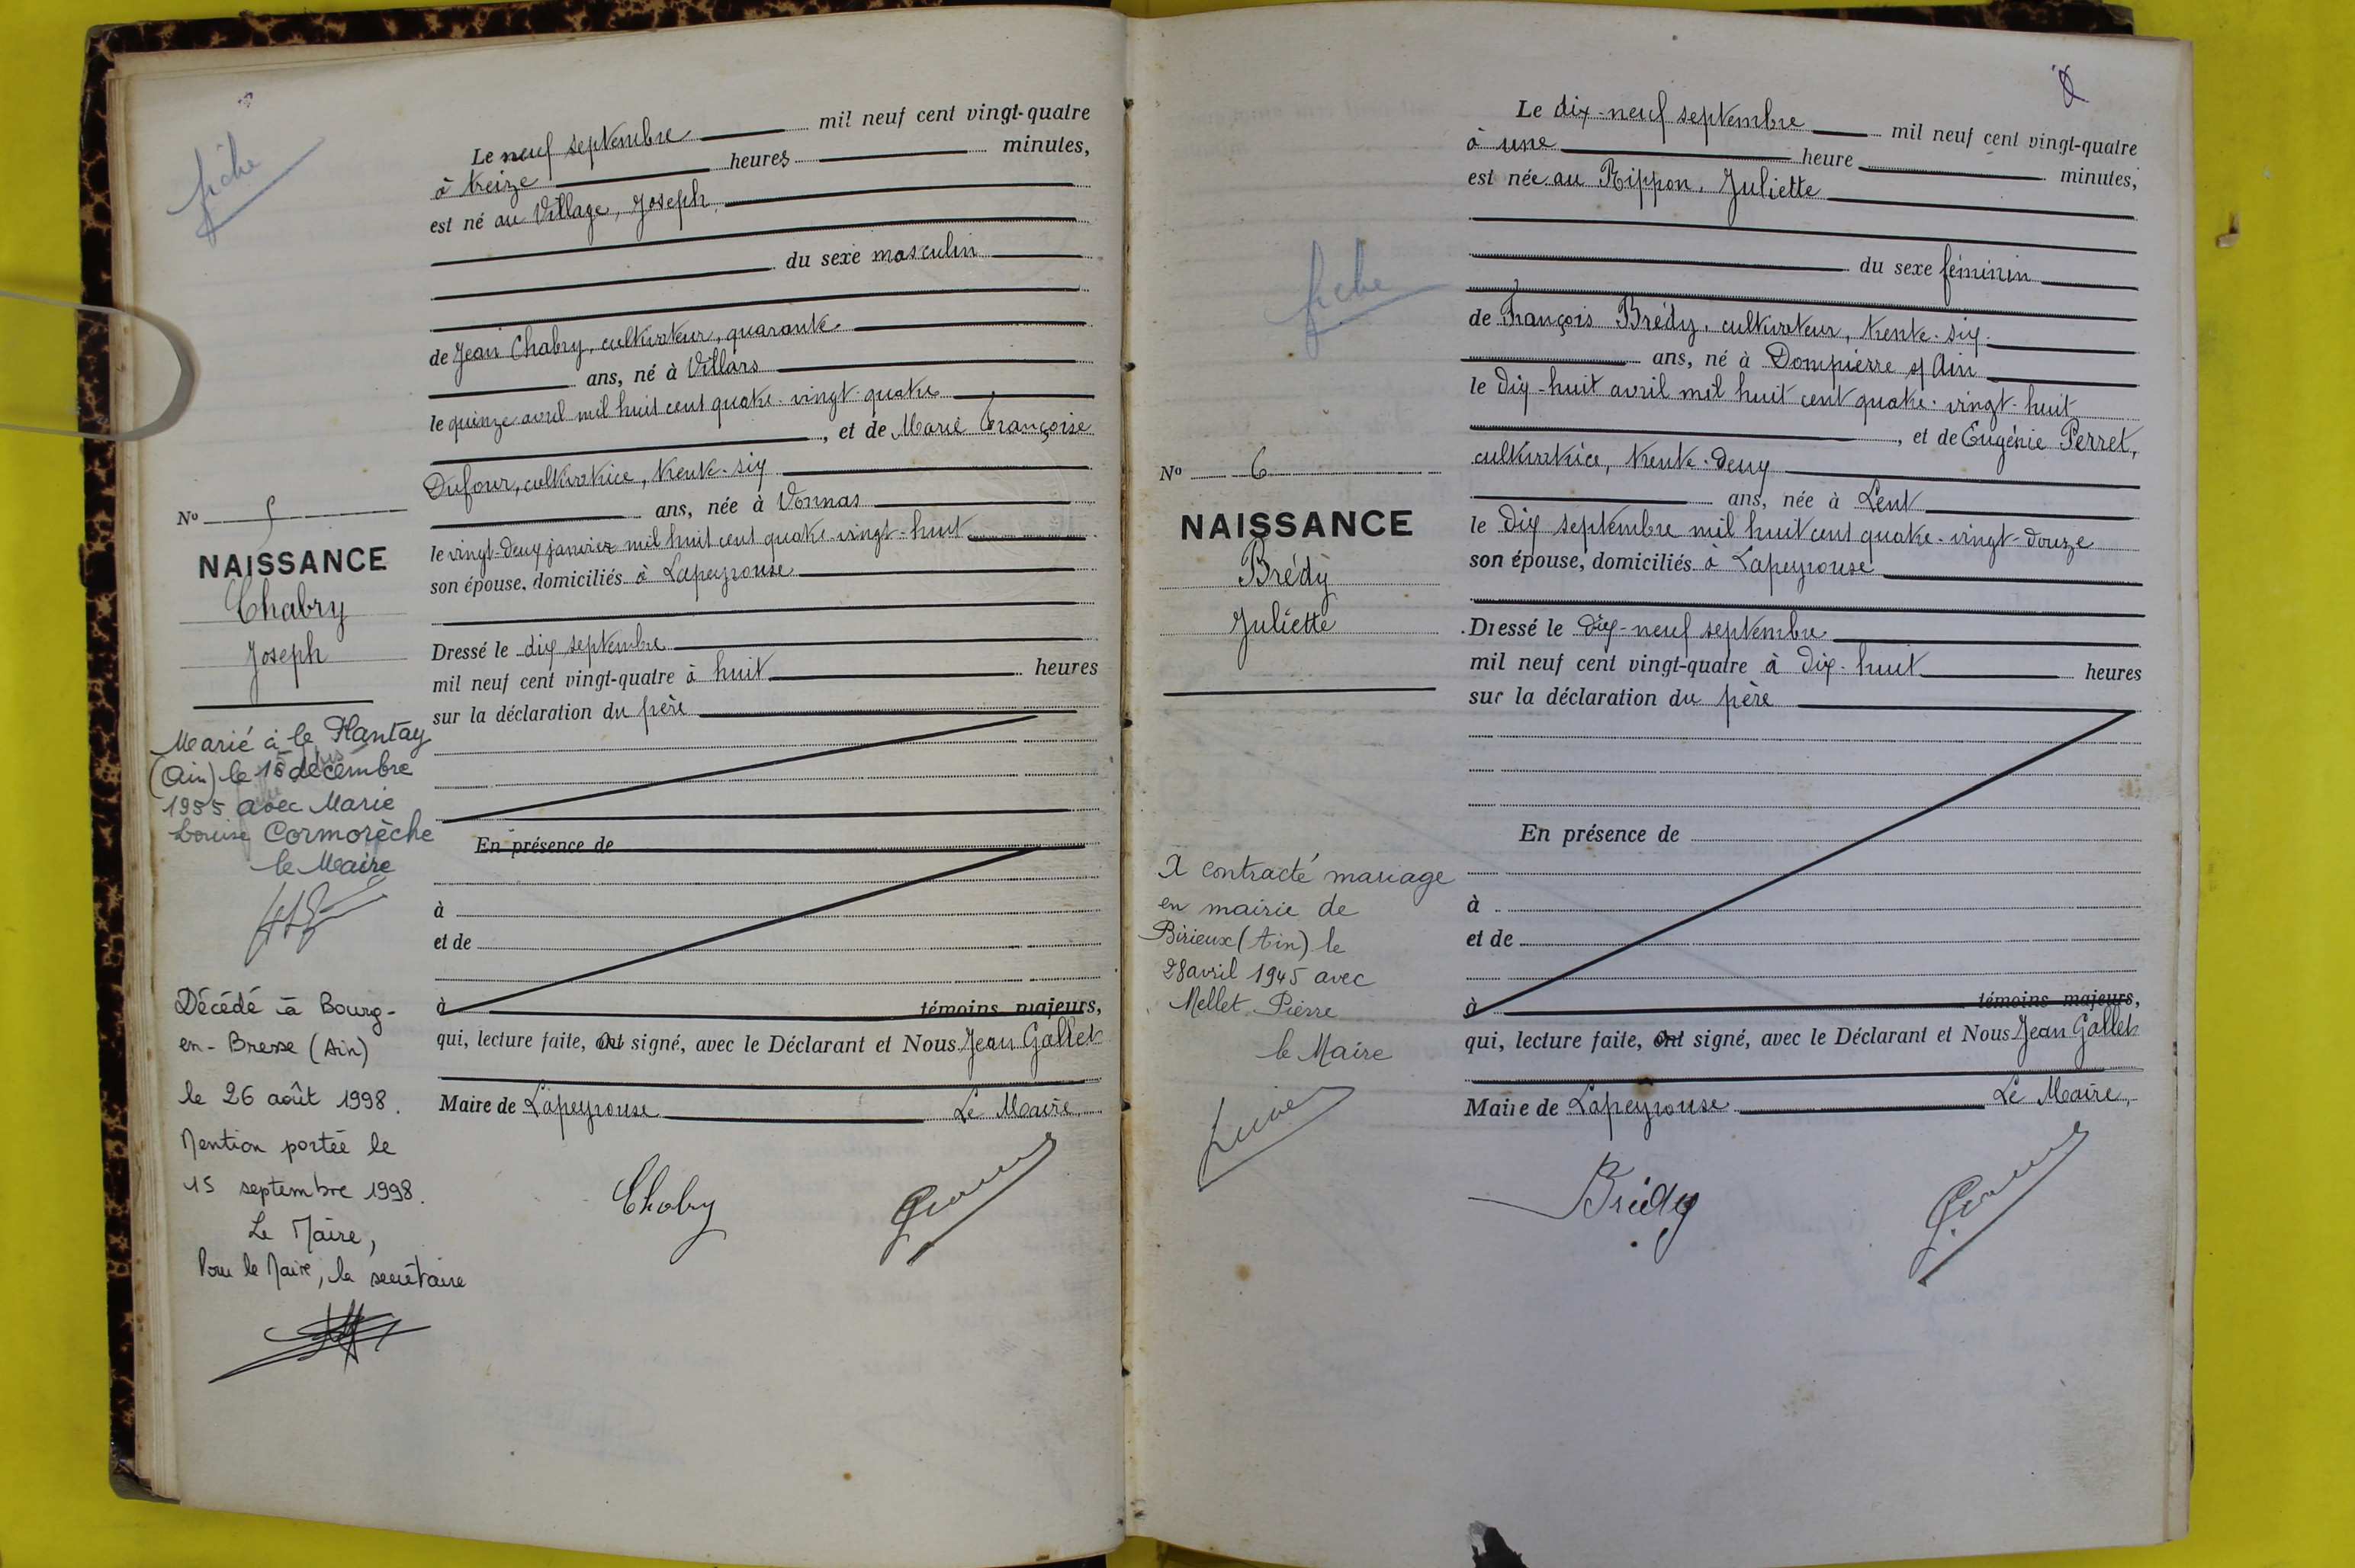 fiche
Le neuf septembre mil neuf cent vingt-quatre
à treize heures minutes,
est né au Village, Joseph,
du sexe masculin
de Jean Chabry, cultivateur, quarante
ans, né à Villars
le quinze avril mil huit cent quatre-vingt-quatre
, et de Marie Françoise
Dufour, cultivatrice, trente-six
ans, née à Vonnas
le vingt-deux janvier mil huit cent quatre-vingt-huit
son épouse, domiciliés à Lapeyrouse
Dressé le dix septembre
mil neuf cent vingt-quatre à huit heures
sur la déclaration du père
En présence de
à
et de
à témoins majeurs,
qui, lecture faite, ont signé, avec le Déclarant et Nous Jean Gallet
Maire de Lapeyrouse Le Maire,
Chabry
No 5
NAISSANCE
Chabry
Joseph
Marié à le Plantay
(Ain) le 15 décembre
1955 avec Marie
Louise Cormorèche
le Maire
Décédé à Bourg-
en-Bresse (Ain)
le 26 août 1998.
Mention portée le
15 septembre 1998.
Le Maire,
Pour le Maire, la secrétaire
fiche
Le dix-neuf septembre mil neuf cent vingt-quatre
à une heure minutes,
est née au Rippon, Juliette
du sexe féminin
de François Brédy, cultivateur, trente-six
ans, né à Dompierre s/ Ain
le dix-huit avril mil huit cent quatre-vingt-huit
, et de Eugénie Perret,
cultivatrice, trente-deux
ans, née à Lent
le dix septembre mil huit cent quatre-vingt-douze
son épouse, domiciliés à Lapeyrouse
Dressé le dix-neuf septembre
mil neuf cent vingt-quatre à dix-huit heures
sur la déclaration du père
En présence de
à
et de
à témoins majeurs,
qui, lecture faite, ont signé, avec le Déclarant et Nous Jean Gallet
Maire de Lapeyrouse Le Maire,
Brédy
No 6
NAISSANCE
Brédy
Juliette
A contracté mariage
en mairie de
Birieux (Ain) le
28 avril 1945 avec
Mellet Pierre
le Maire